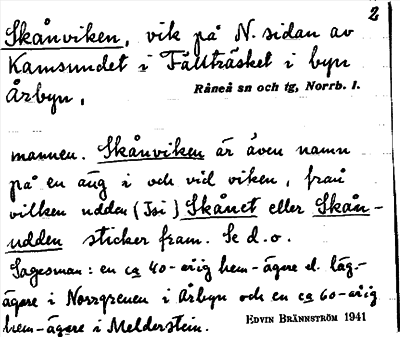 2
Skånviken, vik på N. sidan av
Kamsundet i Fällträsket i byn
Årbyn.
Råneå sn och tg, Norrb. l.
mannen. Skånviken är även namn
på en äng i och vid viken, från
vilken udden (Isi) Skånet eller Skån-
udden sticker fram. Se d.o.
Sagesman: en ca 40-årig hem-ägare el. läg.-
ägare i Norrgrenen i Årbyn och en ca 60-årig
hem-ägare i Melderstein.
EDVIN BRÄNNSTRÖM 1941